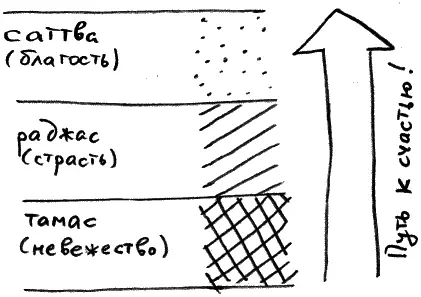 саттва
(благость)
раджас
(страсть)
тамас
(невежество)
Путь к счастью!